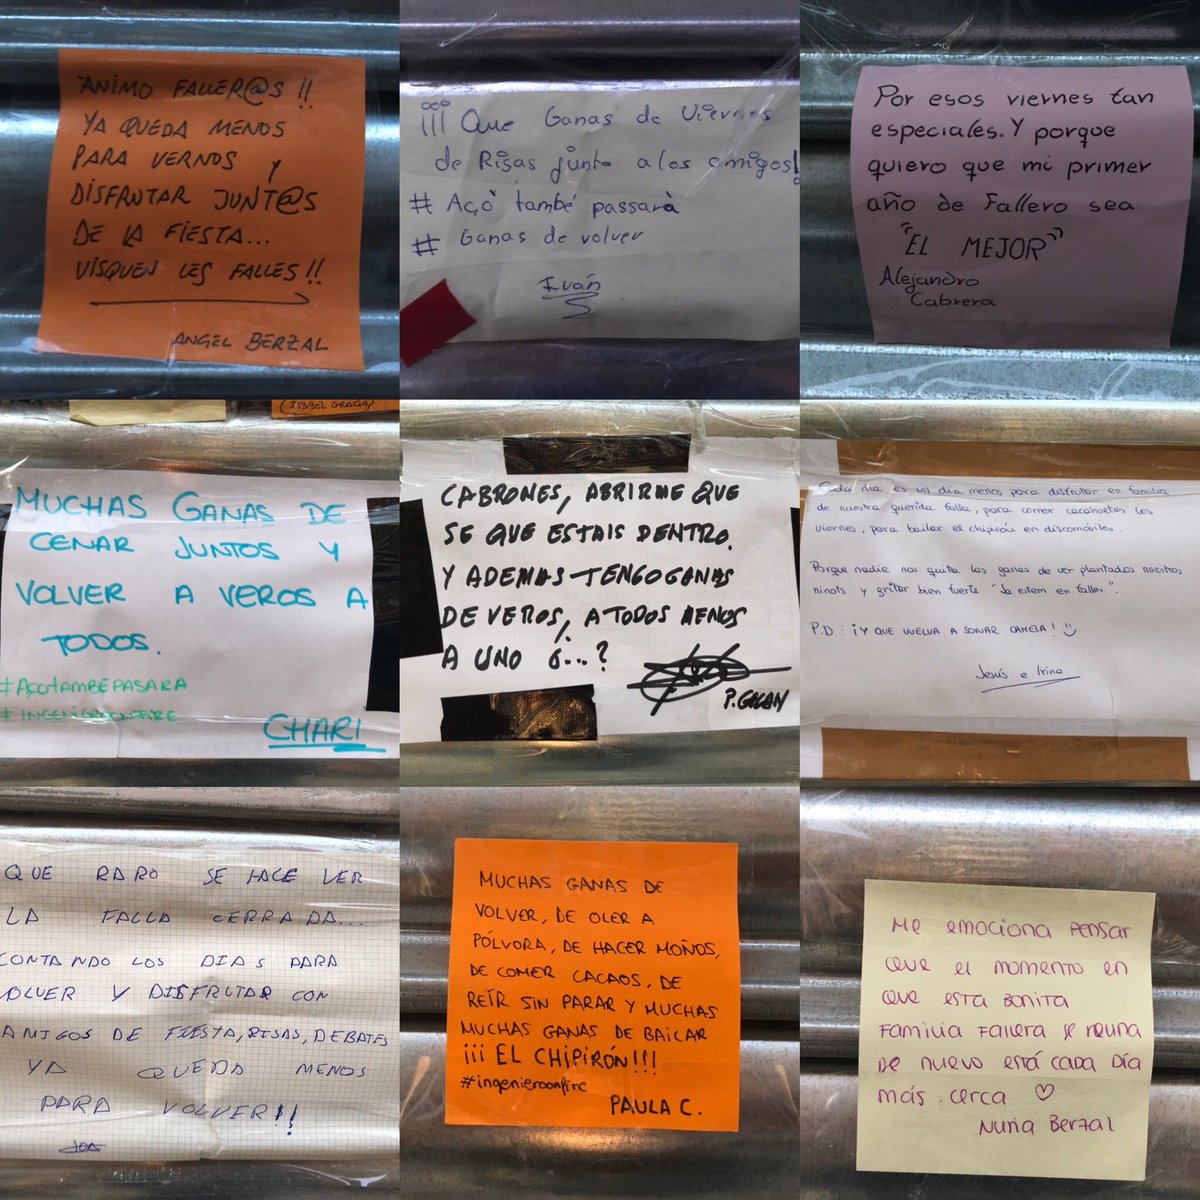 ANIMO FALLER@S !!
YA QUEDA MENOS
PARA VERNOS Y
DISFRUTAR JUNT@S
DE LA FIESTA...
VISQUEN LES FALLES !!
ANGEL BERZAL
¡¡¡ Que Ganas de Viernes
de Risas junto a los amigos!
# Açò també passarà
# Ganas de volver
Iván
Por esos viernes tan
especiales. Y porque
quiero que mi primer
año de Fallero sea
"EL MEJOR"
Alejandro
Cabrera
(ISABEL GRACIA)
MUCHAS GANAS DE
CENAR JUNTOS Y
VOLVER A VEROS A
TODOS.
#AÇOTAMBEPASARA
#INGENIEROONFIRE
CHARI
CABRONES, ABRIRME QUE
SE QUE ESTAIS DENTRO.
Y ADEMAS TENGO GANAS
DE VEROS, A TODOS MENOS
A UNO Ó...?
P. GALAN
Cada día es un día menos para disfrutar en familia
de nuestra querida falla, para comer cacahuetes los
viernes, para bailar el chipirón en discomóviles.
Porque nadie nos quita las ganas de ver plantados nuestros
ninots y gritar bien fuerte "Ja estem en falles".
P.D: ¡Y QUE VUELVA A SONAR CAMELA! :)
Jesús e Irina
QUE RARO SE HACE VER
LA FALLA CERRADA...
CONTANDO LOS DIAS PARA
VOLVER Y DISFRUTAR CON
AMIGOS DE FIESTA, RISAS, DEBATES
YA QUEDA MENOS
PARA VOLVER!!
MUCHAS GANAS DE
VOLVER, DE OLER A
PÓLVORA, DE HACER MOÑOS,
DE COMER CACAOS, DE
REÍR SIN PARAR Y MUCHAS
MUCHAS GANAS DE BAILAR
¡¡¡ EL CHIPIRÓN!!!
#ingenieroonfire
PAULA C.
Me emociona pensar
que el momento en
que esta bonita
familia fallera se reuna
de nuevo está cada día
más cerca ♡
Nuria Berzal